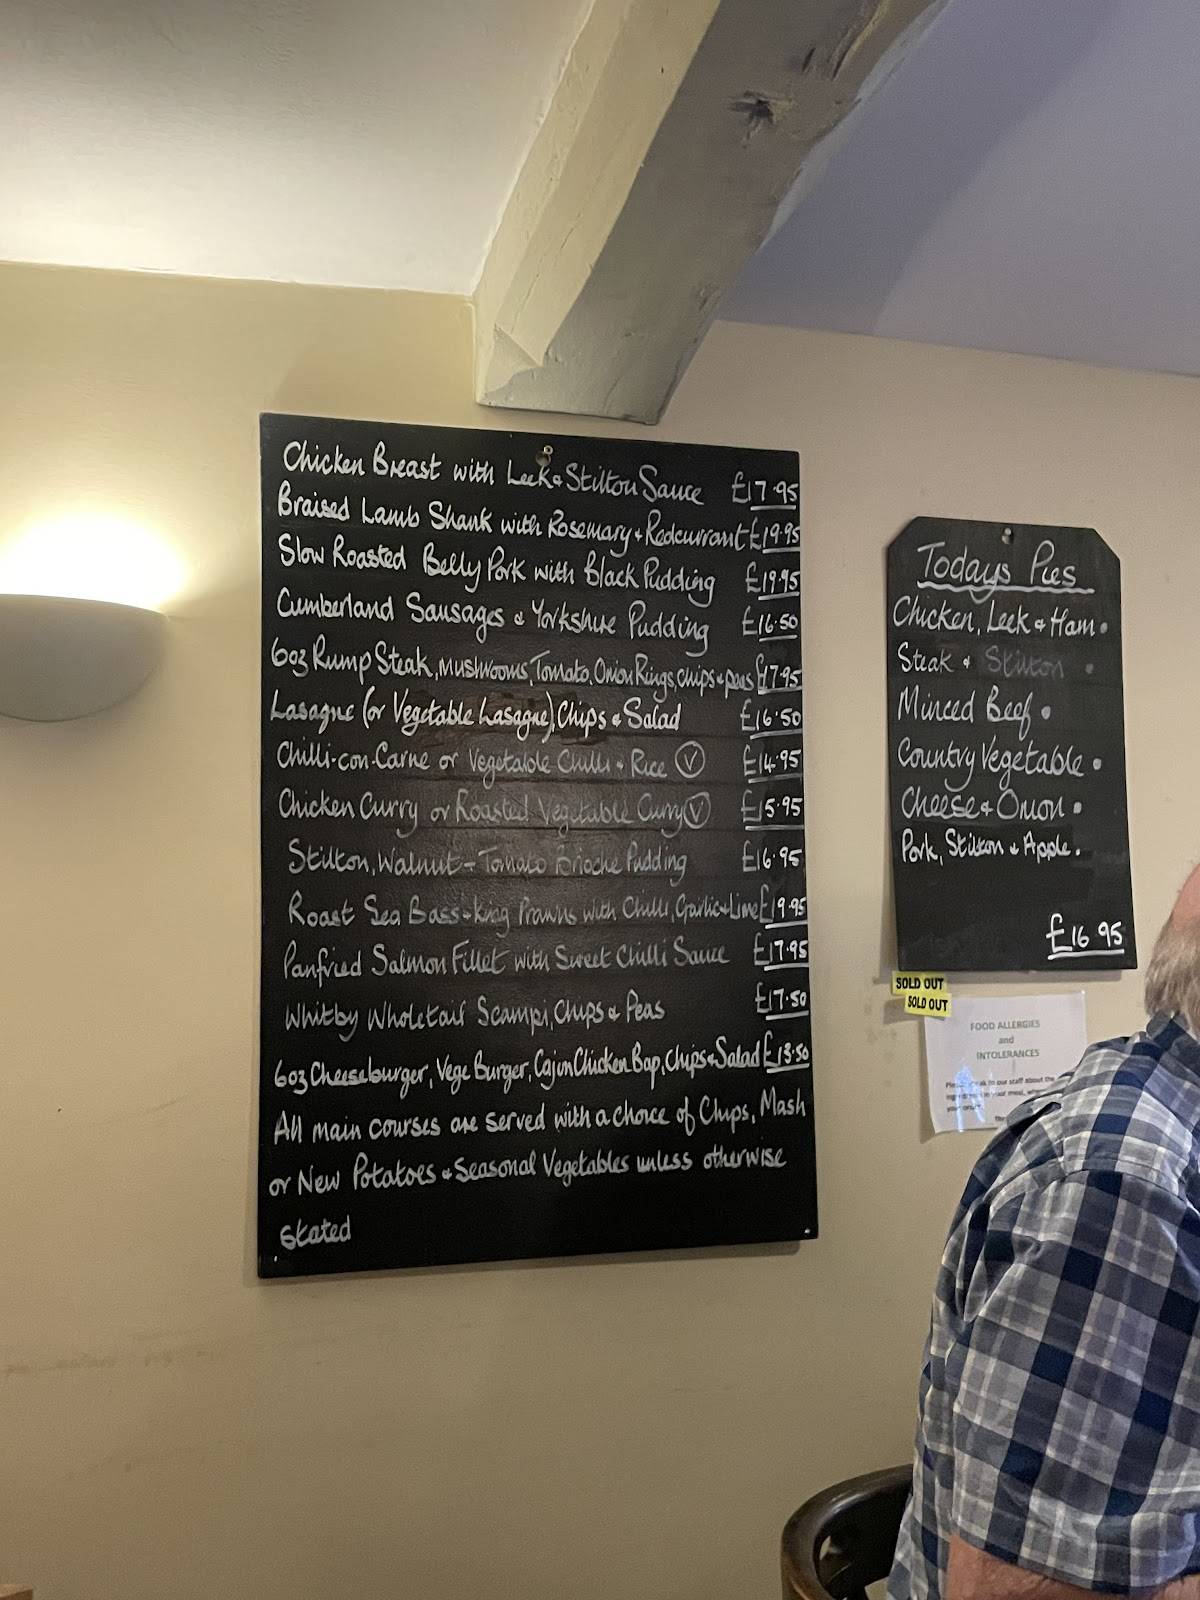 Chicken Breast with Leek & Stilton Sauce £17.95
Braised Lamb Shank with Rosemary & Redcurrant £19.95
Slow Roasted Belly Pork with Black Pudding £19.95
Cumberland Sausages & Yorkshire Pudding £16.50
6oz Rump Steak, Mushrooms, Tomato, Onion Rings, chips & peas £17.95
Lasagne (or Vegetable Lasagne), Chips & Salad £16.50
Chilli-con-Carne or Vegetable Chilli & Rice Ⓥ £14.95
Chicken Curry or Roasted Vegetable Curry Ⓥ £15.95
Stilton, Walnut & Tomato Brioche Pudding £16.95
Roast Sea Bass & King Prawns with Chilli, Garlic & Lime £19.95
Panfried Salmon Fillet with Sweet Chilli Sauce £17.95
Whitby Wholetail Scampi, Chips & Peas £17.50
6oz Cheeseburger, Vege Burger, Cajun Chicken Bap, Chips & Salad £13.50
All main courses are served with a choice of Chips, Mash
or New Potatoes & Seasonal Vegetables unless otherwise
stated
Today's Pies
Chicken, Leek & Ham •
Steak & Stilton •
Minced Beef •
Country Vegetable •
Cheese & Onion •
Pork, Stilton & Apple •
£16.95
SOLD OUT
SOLD OUT
FOOD ALLERGIES
and
INTOLERANCES
to our staff about the
your meal, when